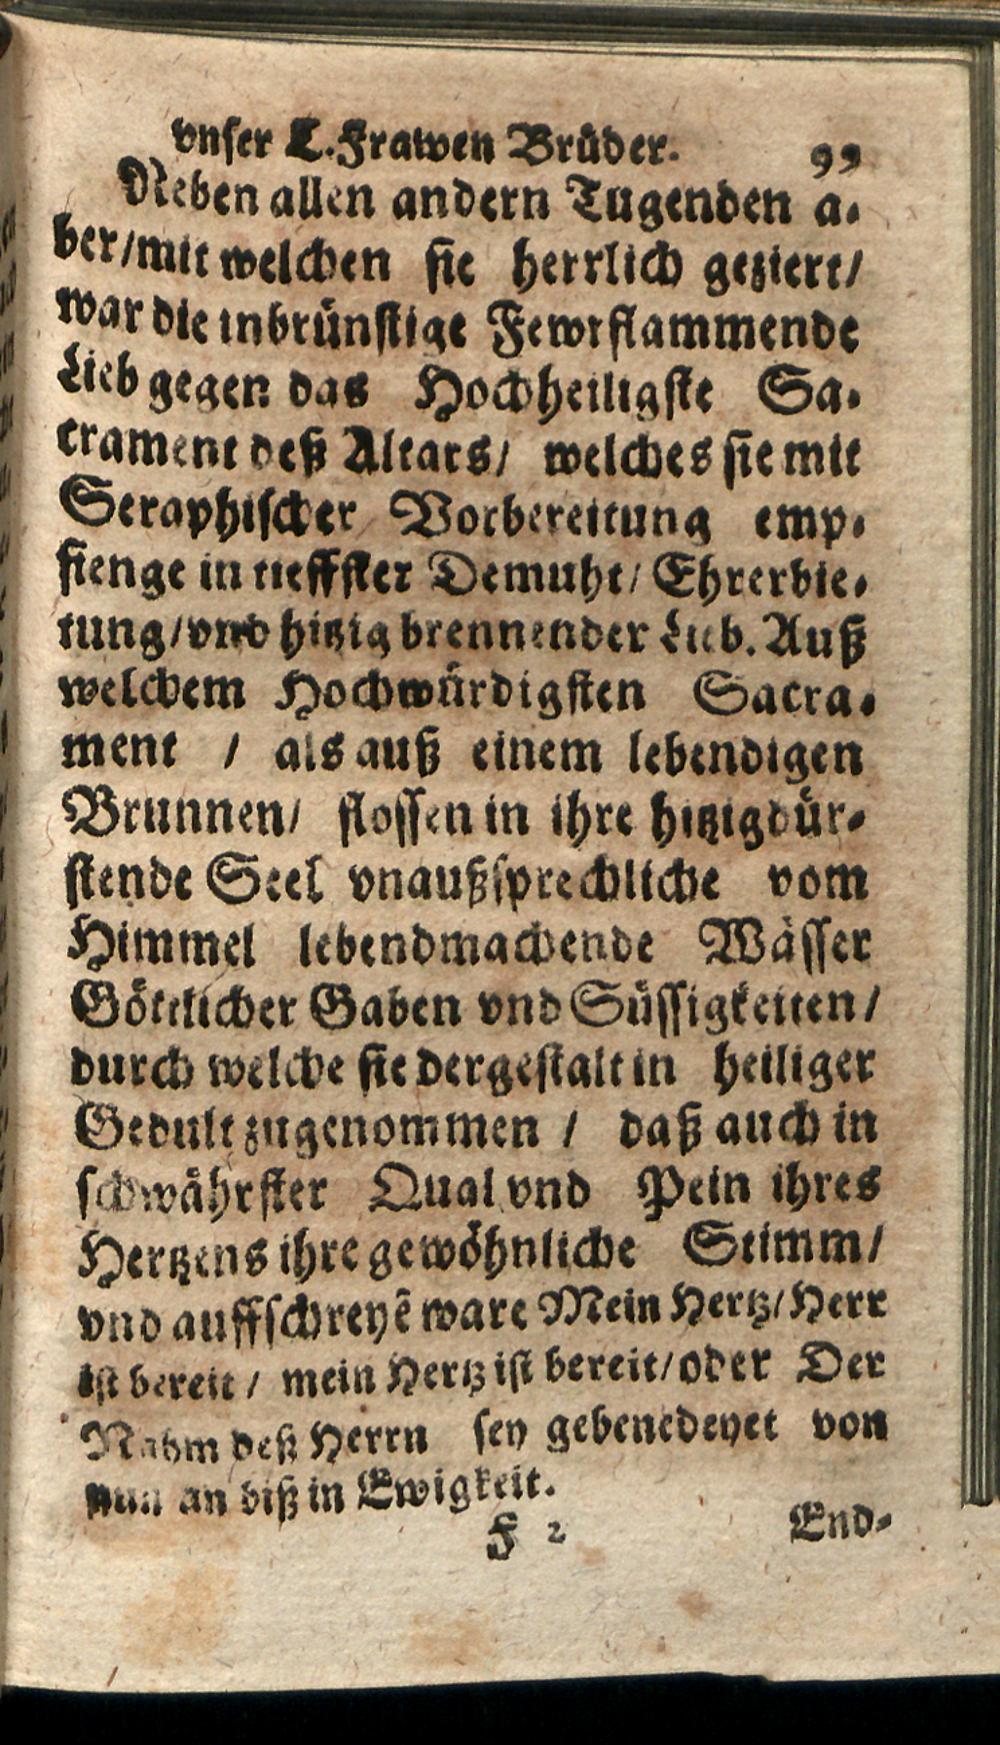 vnser L. Frawen Brüder. 99
Neben allen andern Tugenden a-
ber/mit welchen sie herrlich geziert/
war die inbrünstige Fewrflammende
Lieb gegen das Hochheiligste Sa-
crament deß Altars/ welches sie mit
Seraphischer Vorbereitung emp-
fienge in tieffster Demuht/ Ehrerbie-
tung/vnd hitzig brennender Lieb. Auß
welchem Hochwürdigsten Sacra-
ment / als auß einem lebendigen
Brunnen/ flossen in ihre hitzigdür-
stende Seel vnaußsprechliche vom
Himmel lebendmachende Wässer
Göttlicher Gaben vnd Süssigkeiten/
durch welche sie dergestalt in heiliger
Gedult zugenommen / daß auch in
schwährster Qual vnd Pein ihres
Hertzens ihre gewöhnliche Stimm/
vnd auffschreyẽ ware Mein Hertz/Herr
ist bereit / mein Hertz ist bereit/oder Der
Nahm deß Herrn sey gebenedeyet von
nun an biß in Ewigkeit.
F 2 End-